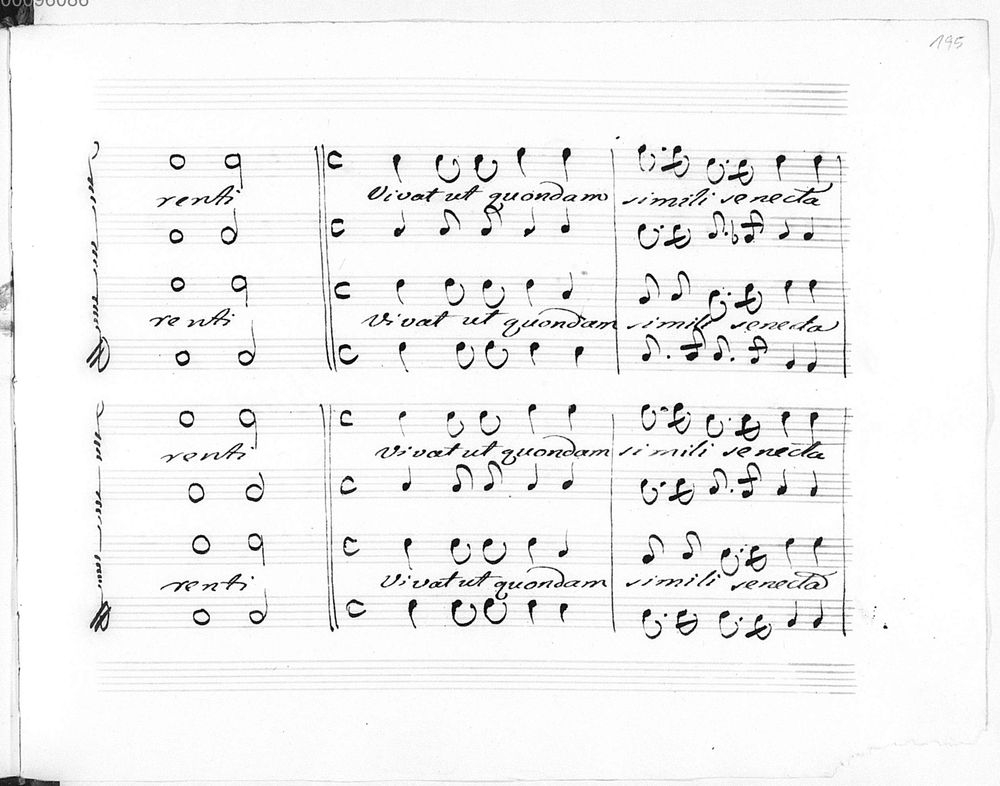 195
renti Vivat ut quondam simili senecta
renti Vivat ut quondam simili senecta
renti Vivat ut quondam simili senecta
renti Vivat ut quondam simili senecta